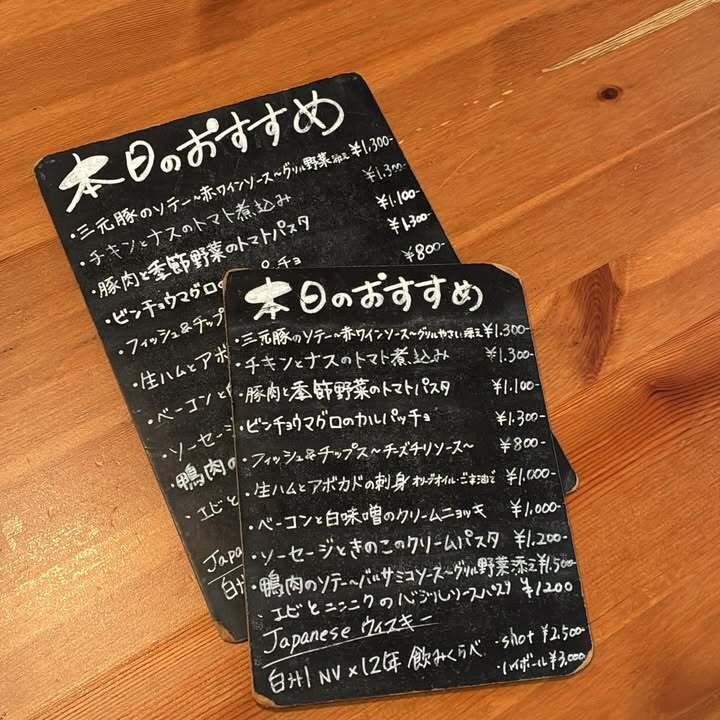 本日のおすすめ
・三元豚のソテー~赤ワインソース~グリル野菜添え ¥1,300-
・チキンとナスのトマト煮込み ¥1,300-
・豚肉と季節野菜のトマトパスタ ¥1,100-
・ビンチョウマグロの ¥1,300-
パッチョ ¥800-
・フィッシュ&チップ
・生ハムとアボカ
・ベーコンと白
・ソーセージ
・鴨肉の
・エビと
Japa
白州
本日のおすすめ
・三元豚のソテー~赤ワインソース~グリルやさい添え ¥1,300-
・チキンとナスのトマト煮込み ¥1,300-
・豚肉と季節野菜のトマトパスタ ¥1,100-
・ビンチョウマグロのカルパッチョ ¥1,300-
・フィッシュ&チップス~チーズチリソース~ ¥800-
・生ハムとアボカドの刺身 オリーブオイル・ごま油で ¥1,000-
・ベーコンと白味噌のクリームニョッキ ¥1,000-
・ソーセージときのこのクリームパスタ ¥1,200-
・鴨肉のソテー~バルサミコソース~グリル野菜添え ¥1,500-
・エビとニンニクのバジルソースパスタ ¥1200
Japanese ウィスキー
白州 NV×12年 飲みくらべ ・shot ¥2,500-
・ハイボール ¥3,000-